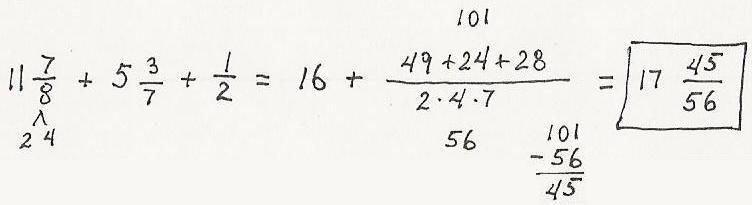 101
11 7/8 + 5 3/7 + 1/2 = 16 + (49+24+28)/(2·4·7) = 17 45/56
2 4
56
101
-56
45